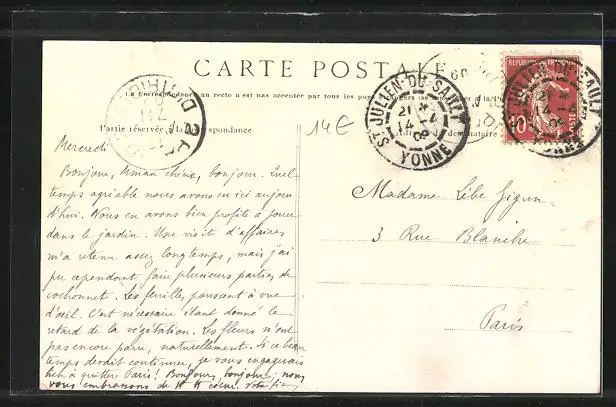 CARTE POSTALE
La Correspondance au recto n'est pas acceptée par tous les pays
Partie réservée à la correspondance
14€
ST JULIEN-DU-SAULT
21 -4
08
YONNE
DISTRIBUTION
REPUBLIQUE FRANÇAISE
10
POSTES
Mercredi
Bonjour, Maman chérie, bonjour. Quel
temps agréable nous avons eu ici aujour
d'hui. Nous en avons bien profité à jouer
dans le jardin. Une visite d'affaires
m'a retenu assez longtemps, mais j'ai
pu cependant faire plusieurs parties de
cochonnet. Les feuilles poussent à vue
d'œil. C'est nécessaire étant donné le
retard de la végétation. Les fleurs n'ont
pas encore paru, naturellement. Si ce beau
temps devait continuer, je vous engagerais
bien à quitter Paris! Bonjour, bonjour, nous
vous embrassons de tt cœur. Votre
Madame
3 Rue Blanche
Paris